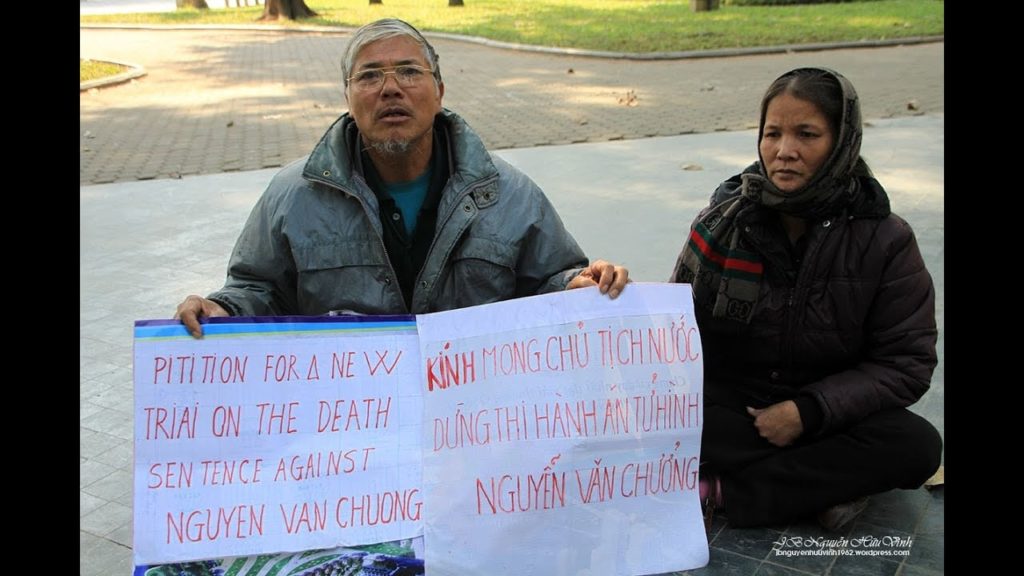 PITITION FOR A NEW
TRIAI ON THE DEATH
SENTENCE AGAINST
NGUYEN VAN CHUONG
KÍNH MONG CHỦ TỊCH NƯỚC
DỪNG THI HÀNH ÁN TỬ HÌNH
NGUYỄN VĂN CHƯỞNG
JB Nguyễn Hữu Vinh
jbnguyenhuuvinh1962.wordpress.com